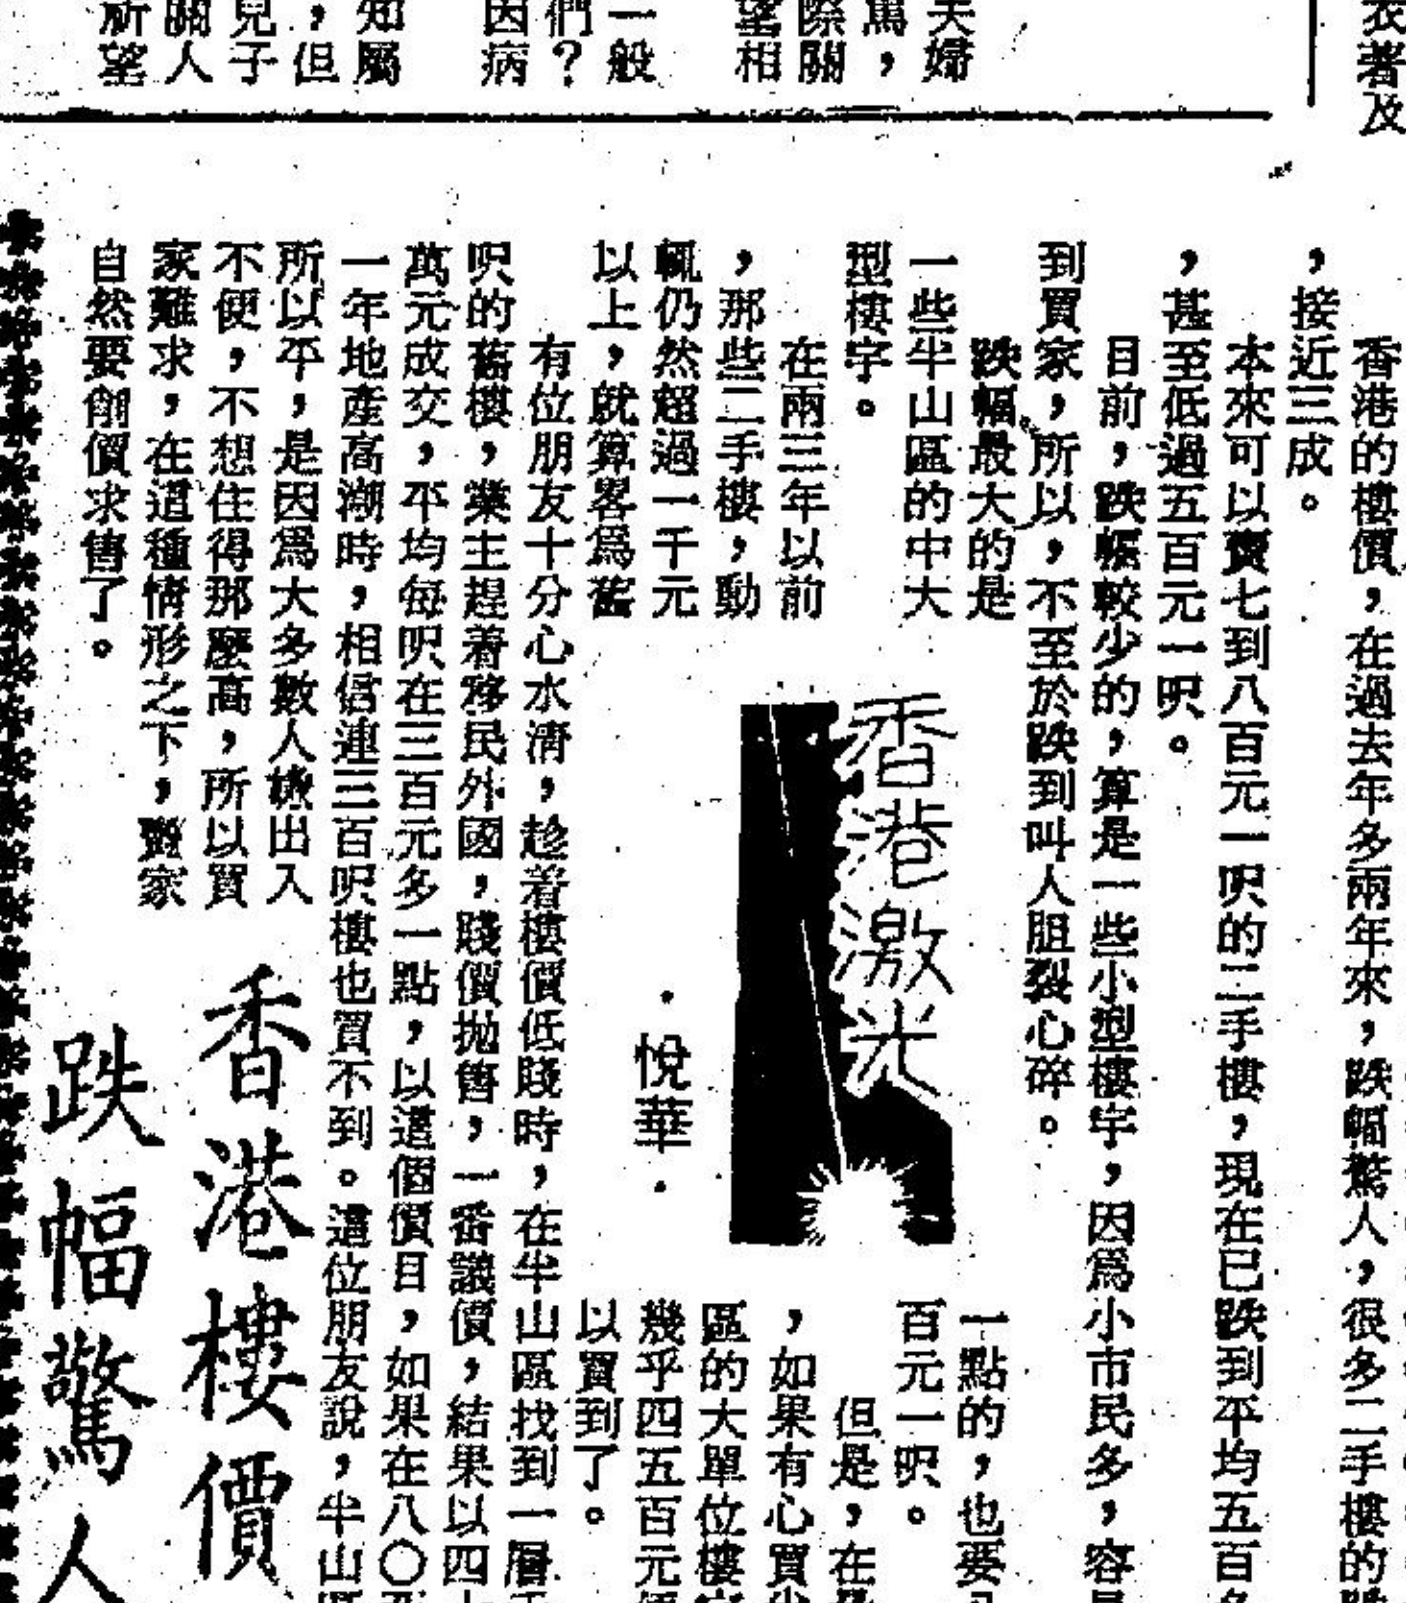 衣著及
夫婦
篤，
際關
望相
一般
們？
因病
知屬
，但
兒子
關人
所望
香港的樓價，在過去年多兩年來，跌幅驚人，很多二手樓的跌
，接近三成。
本來可以賣七到八百元一呎的二手樓，現在已跌到平均五百多
，甚至低過五百元一呎。
目前，跌幅較少的，算是一些小型樓宇，因爲小市民多，容易
到買家，所以，不至於跌到叫人胆裂心碎。
跌幅最大的是
一些半山區的中大
型樓宇。
在兩三年以前
，那些二手樓，動
輒仍然超過一千元
以上，就算畧爲舊
一點的，也要
百元一呎。
但是，在
，如果有心買
區的大單位樓宇
幾乎四五百元便
以買到了。
香港激光
·悅華·
有位朋友十分心水清，趁着樓價低賤時，在半山區找到一層
呎的舊樓，業主趕着移民外國，賤價拋售，一番議價，結果以四十
萬元成交，平均每呎在三百元多一點，以這個價目，如果在八〇至
一年地產高潮時，相信連三百呎樓也買不到。這位朋友說，半山區
所以平，是因爲大多數人嫌出入
不便，不想住得那麼高，所以買
家難求，在這種情形之下，賣家
自然要削價求售了。
香港樓價
跌幅驚人